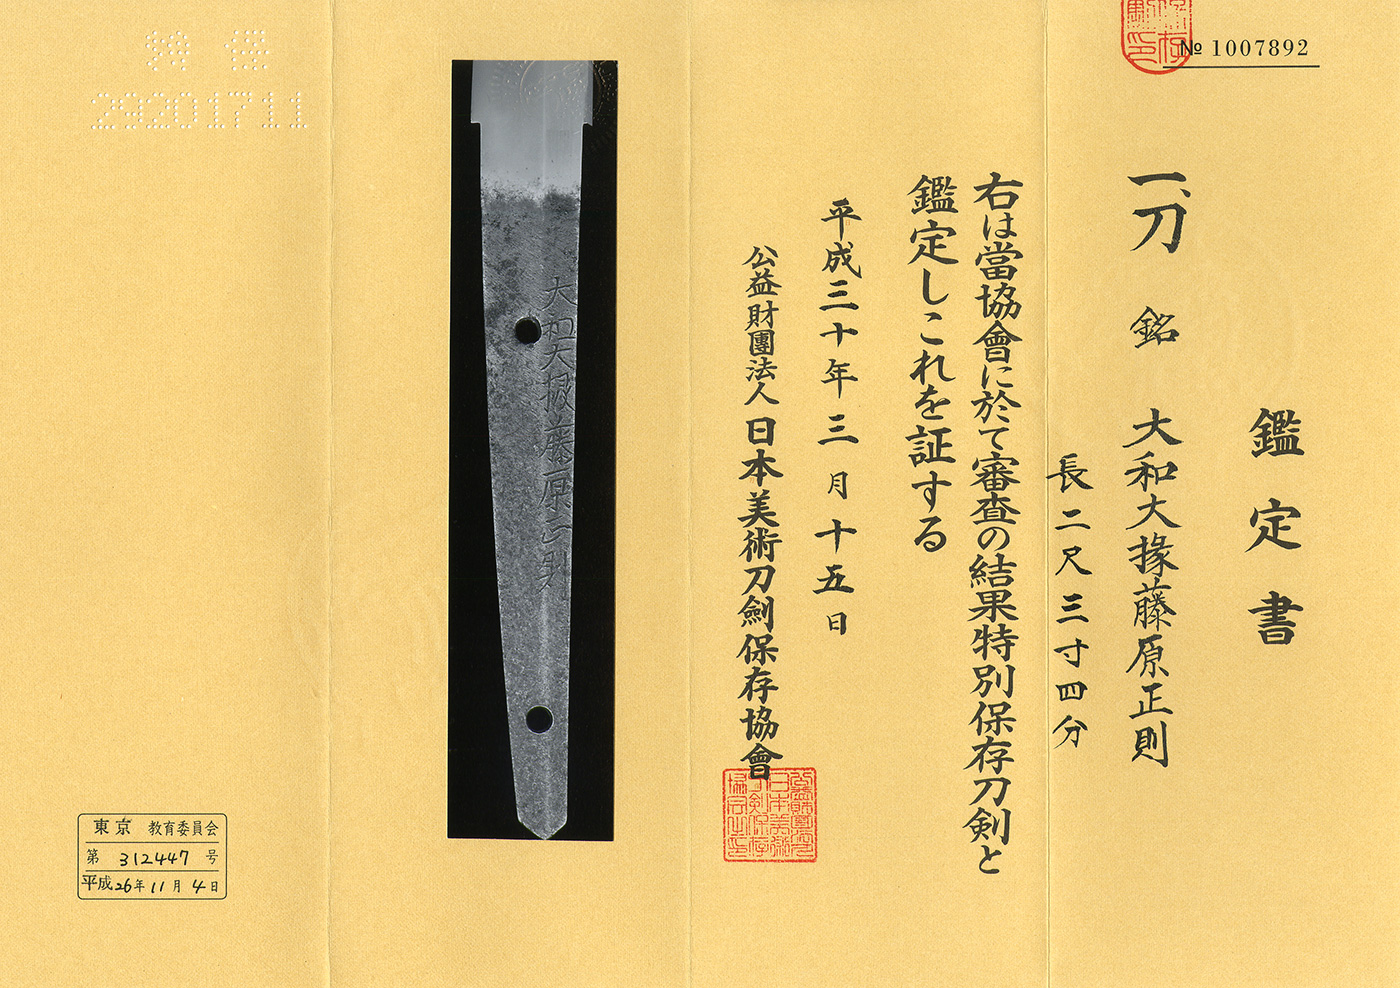 № 1007892
鑑定書
一、刀 銘 大和大掾藤原正則
長二尺三寸四分
右は當協會に於て審査の結果特別保存刀剣と
鑑定しこれを証する
平成三十年三月十五日
公益財團法人日本美術刀劍保存協會
大和大掾藤原正則
29201711
東京 教育委員会
第 312447 号
平成26年11月4日